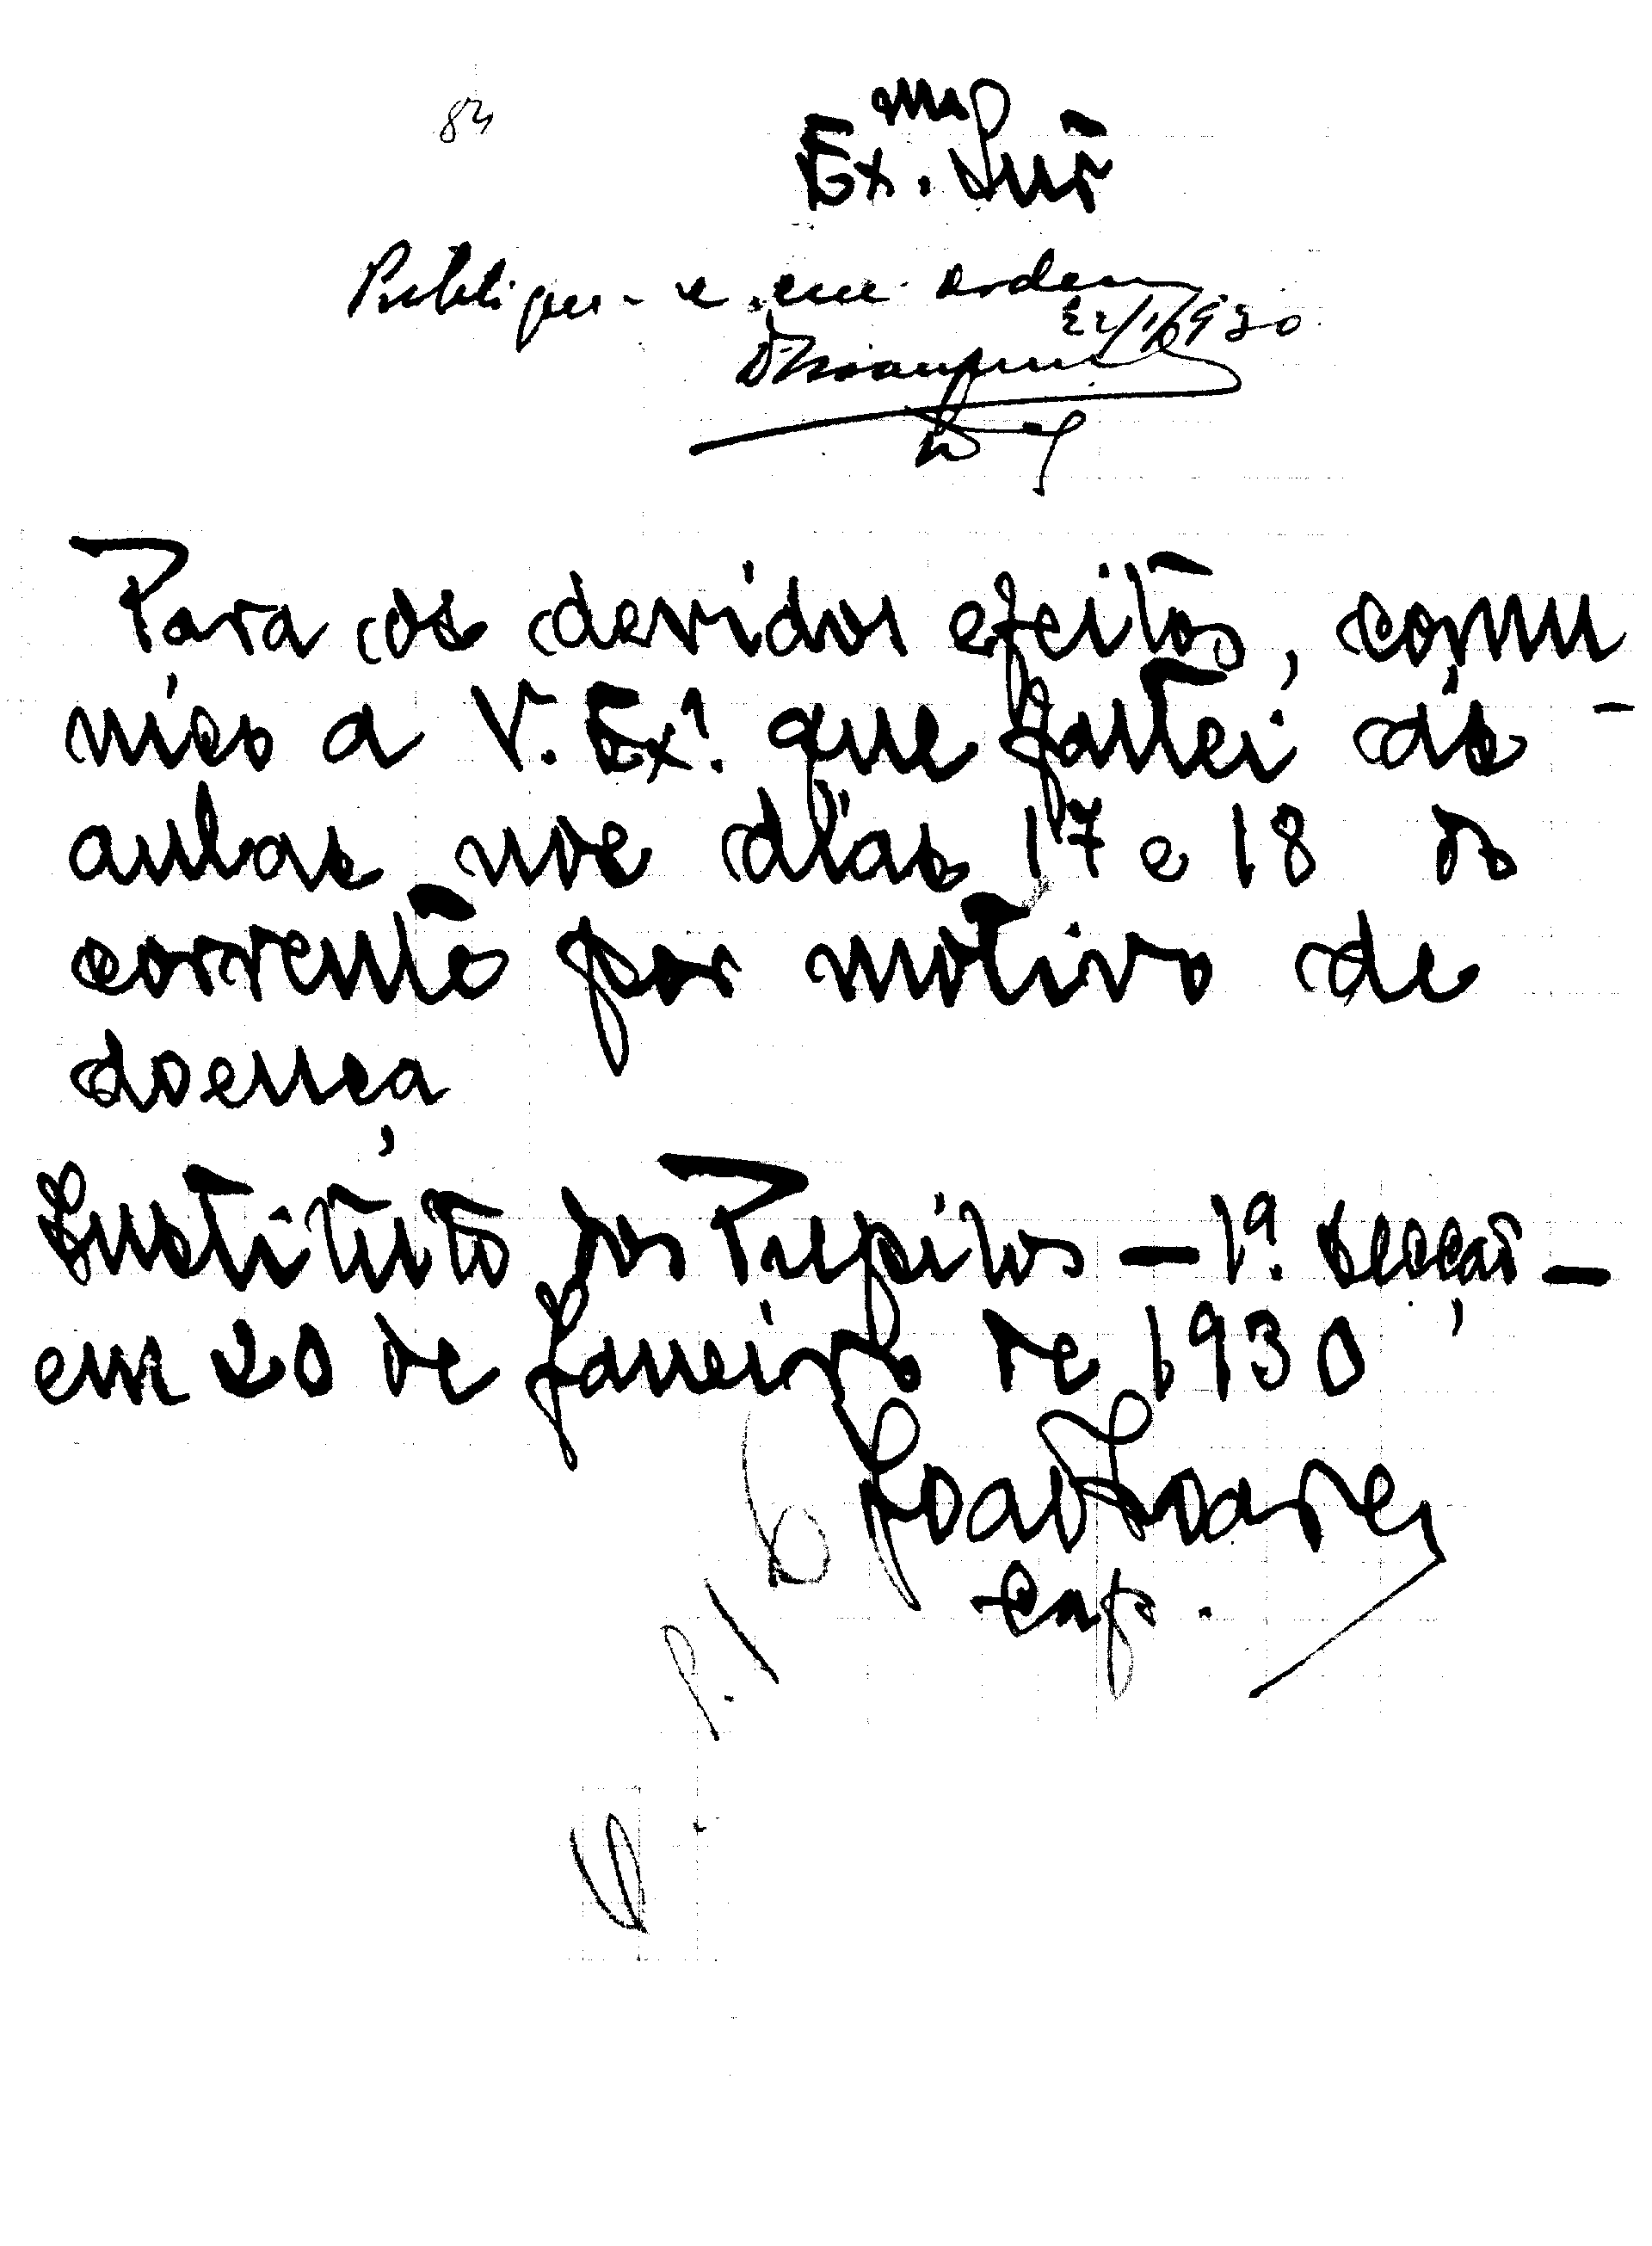 84
Ex.mo Snr
Publique-se em ordem
22/1/930
Para os devidos efeitos, comu
nico a V. Ex.ª que faltei ás -
aulas nos dias 17 e 18 do
corrente por motivo de
doença
Instituto dos Pupilos — 1ª. secção —
em 20 de Janeiro de 1930
João Soares
cap.